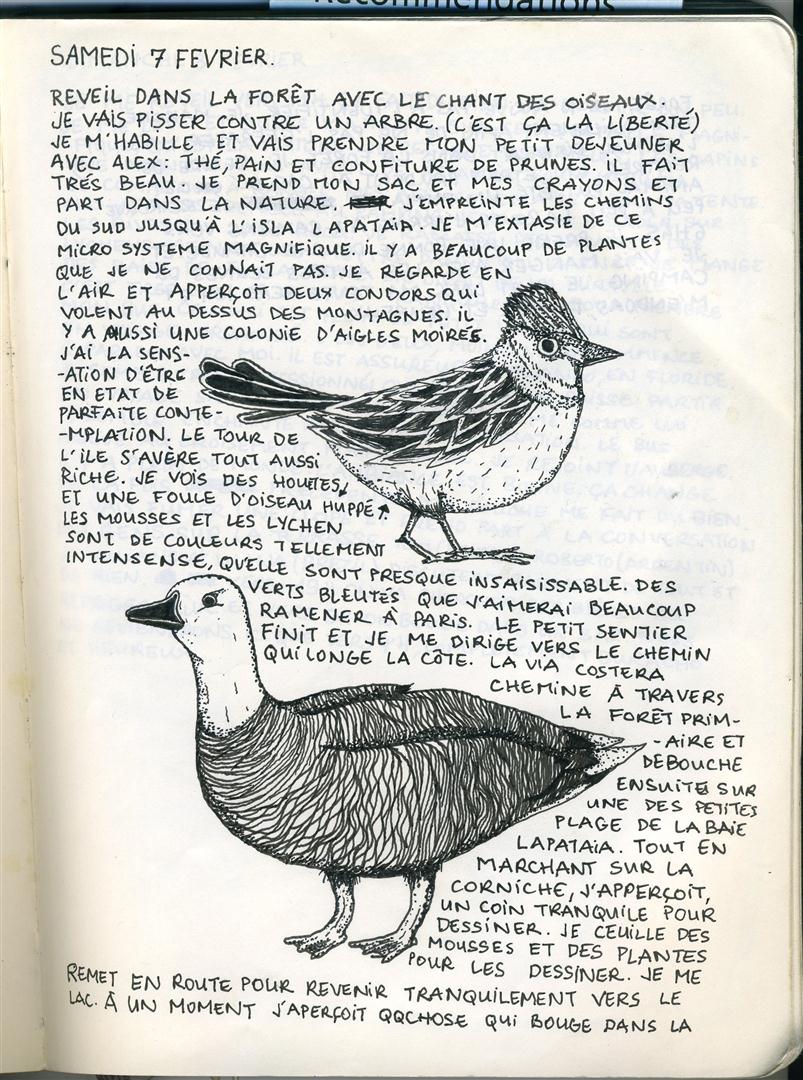 Recommendations
SAMEDI 7 FEVRIER.
REVEIL DANS LA FORÊT AVEC LE CHANT DES OISEAUX.
JE VAIS PISSER CONTRE UN ARBRE. (C'EST ÇA LA LIBERTÉ)
JE M'HABILLE ET VAIS PRENDRE MON PETIT DEJEUNER
AVEC ALEX: THÉ, PAIN ET CONFITURE DE PRUNES. IL FAIT
TRÉS BEAU JE PREND MON SAC ET MES CRAYONS ET
PART DANS LA NATURE. J'EMPREINTE LES CHEMINS
DU SUD JUSQU'À L'ISLA LAPATAIA. JE M'EXTASIE DE CE
MICRO SYSTEME MAGNIFIQUE. IL Y A BEAUCOUP DE PLANTES
QUE JE NE CONNAIT PAS. JE REGARDE EN
L'AIR ET APPERÇOIT DEUX CONDORS QUI
VOLENT AU DESSUS DES MONTAGNES. IL
Y A AUSSI UNE COLONIE D'AIGLES MOIRÉS.
J'AI LA SENS-
-ATION D'ÊTRE
EN ETAT DE
PARFAITE CONTE-
-MPLATION. LE TOUR DE
L'ILE S'AVÈRE TOUT AUSSI
RICHE. JE VOIS DES HOUETES↓
ET UNE FOULE D'OISEAU HUPPÉ↑
LES MOUSSES ET LES LYCHEN
SONT DE COULEURS TELLEMENT
INTENSENSE, QU'ELLE SONT PRESQUE INSAISISSABLE. DES
VERTS BLEUTÉS QUE J'AIMERAI BEAUCOUP
RAMENER À PARIS. LE PETIT SENTIER
FINIT ET JE ME DIRIGE VERS LE CHEMIN
QUI LONGE LA CÔTE. LA VIA COSTERA
CHEMINE À TRAVERS
LA FORÊT PRIM-
-AIRE ET
DEBOUCHE
ENSUITE SUR
UNE DES PETITES
PLAGE DE LA BAIE
LAPATAIA. TOUT EN
MARCHANT SUR LA
CORNICHE, J'APPERÇOIT,
UN COIN TRANQUILE POUR
DESSINER. JE CEUILLE DES
MOUSSES ET DES PLANTES
POUR LES DESSINER. JE ME
REMET EN ROUTE POUR REVENIR TRANQUILEMENT VERS LE
LAC. À UN MOMENT J'APERÇOIT QQCHOSE QUI BOUGE DANS LA